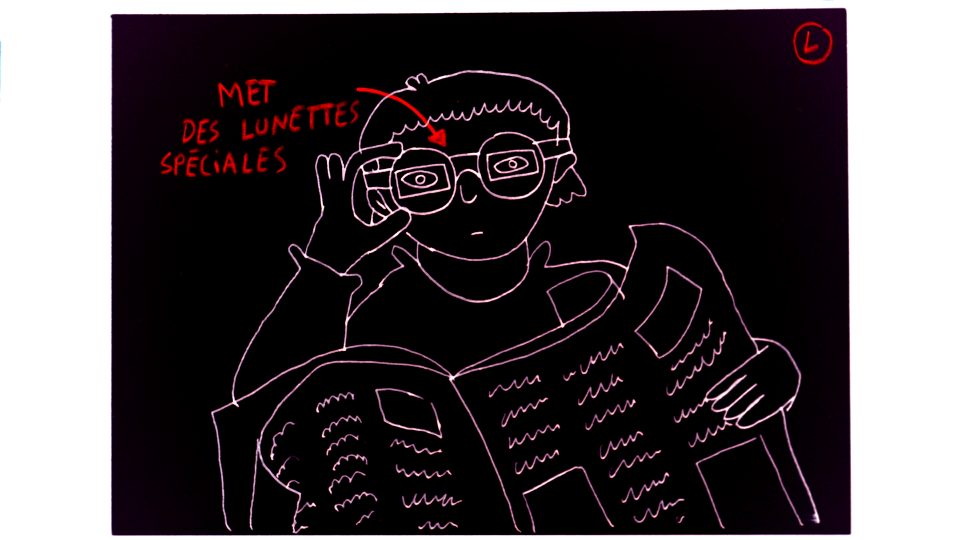 L
MET
DES LUNETTES
SPÉCIALES